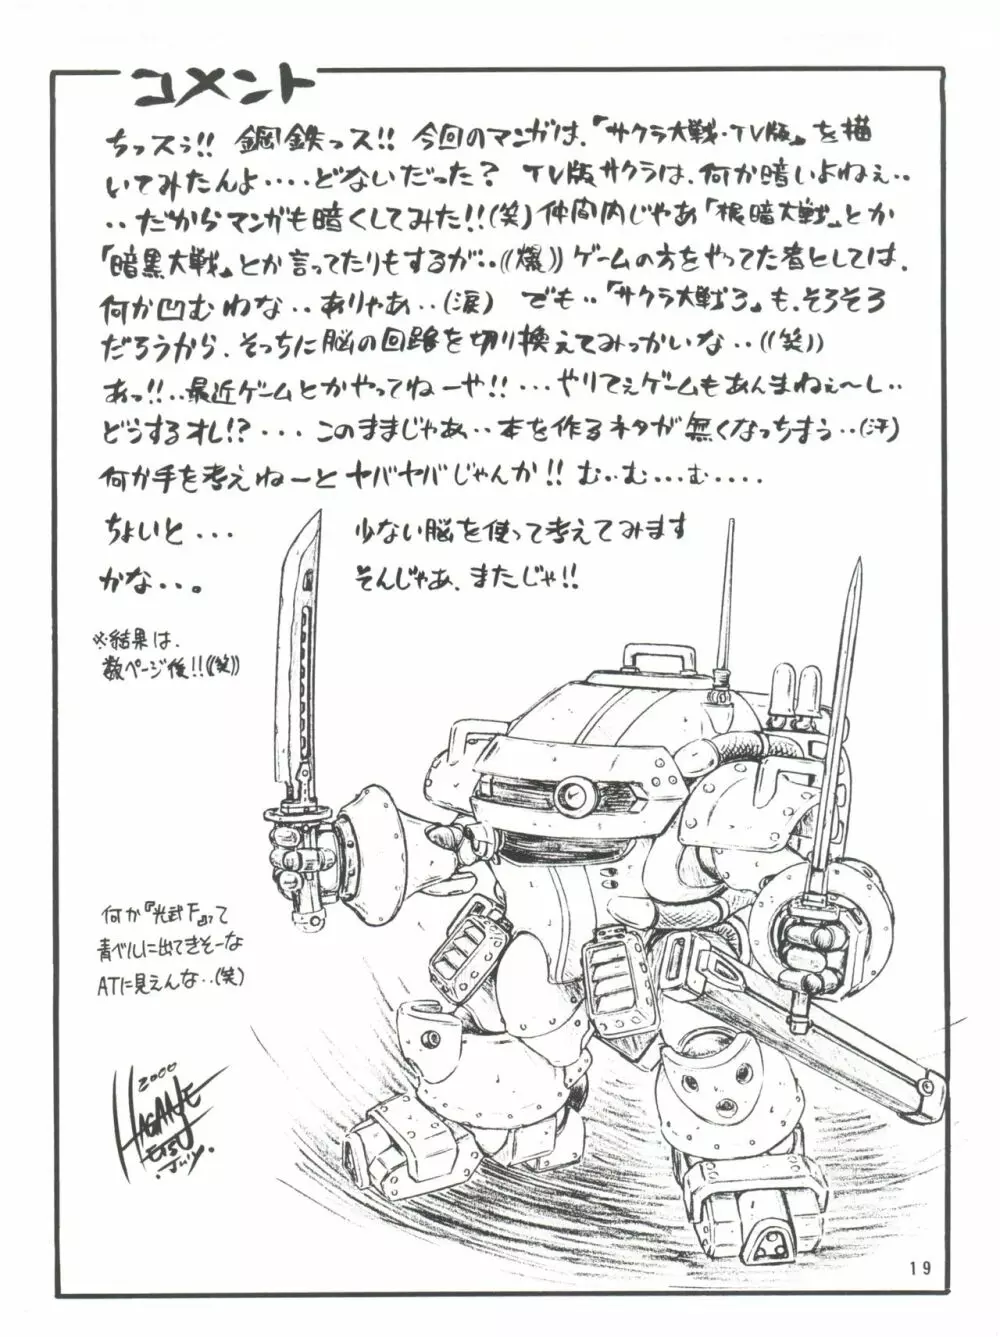 コメント
ちっスぅ!! 鋼鉄っス!! 今回のマンガは、「サクラ大戦・TV版」を描
いてみたんよ‥‥どないだった? TV版サクラは、何か暗いよねぇ‥
‥だからマンガも暗くしてみた!!(笑)仲間内じゃあ「根暗大戦」とか
「暗黒大戦」とか言ってたりもするが‥((爆))ゲームの方をやってた者としては、
何か凹むわな‥ありゃあ‥(涙) でも‥「サクラ大戦3」も、そろそろ
だろうから、そっちに脳の回路を切り換えてみっかいな‥((笑))
あっ!!‥最近ゲームとかやってねーや!!‥‥やりてぇゲームもあんまねぇ〜し‥
どうするオレ!?‥‥このままじゃあ‥本を作るネタが無くなっちまう‥(汗)
何か手を考えねーとヤバヤバじゃんか!! むぃむ‥‥む‥‥‥
ちょいと‥‥ 少ない脳を使って考えてみます
かな‥‥。 そんじゃあ、またじゃ!!
※結果は、
数ページ後!!((笑))
何か『光武F』って
青ベルに出てきそーな
ATに見えんな‥(笑)
2000
HAGANE
ETSU
July.
19